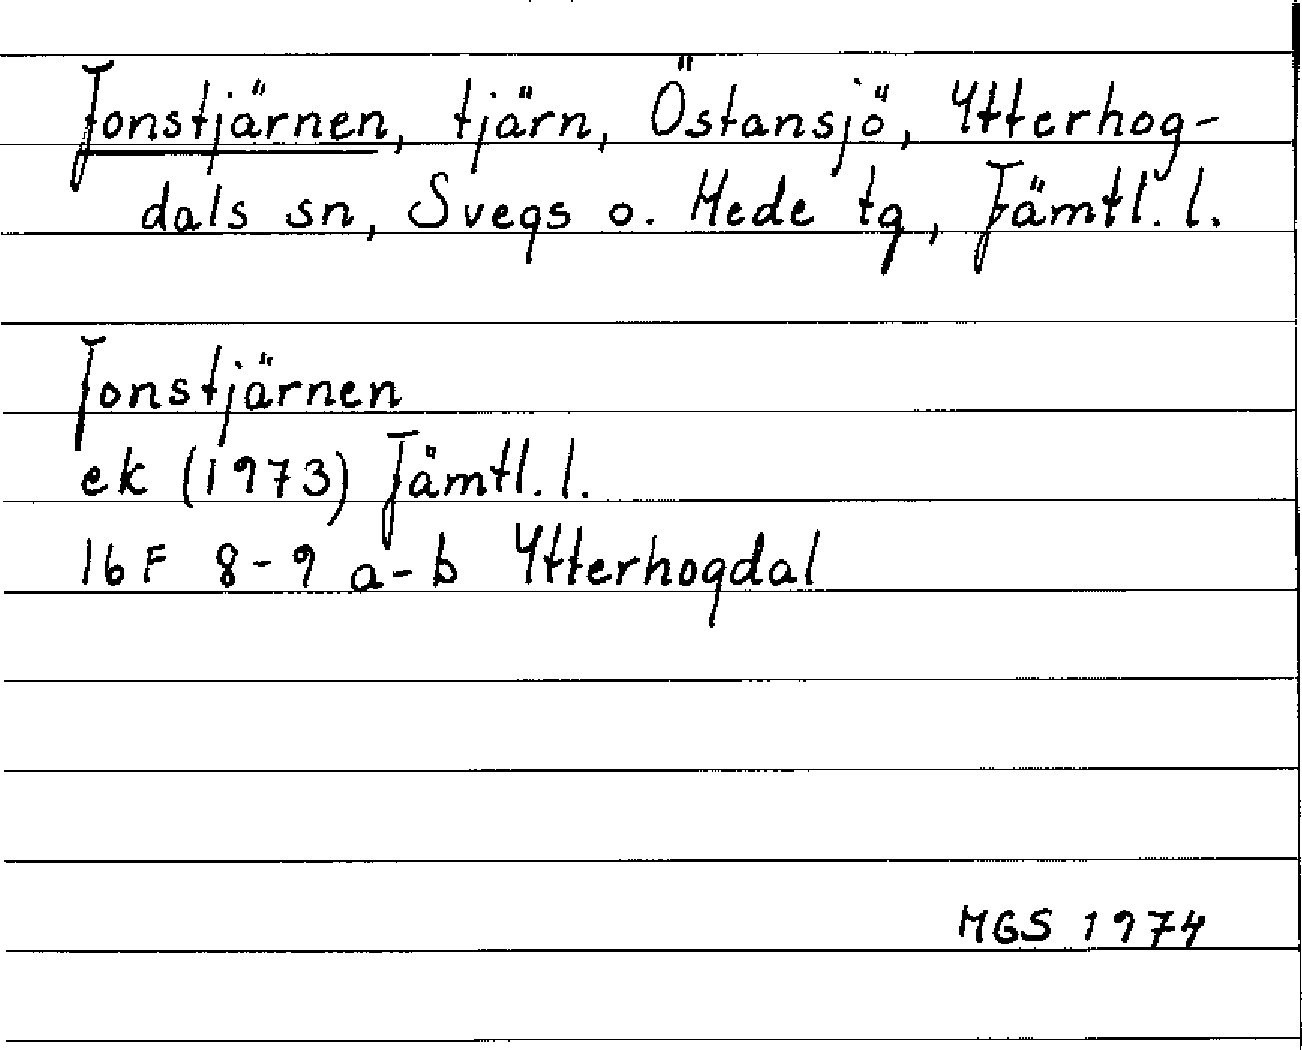 Jonstjärnen, tjärn, Östansjö, Ytterhog-
dals sn, Svegs o. Hede tg, Jämtl. l.
Jonstjärnen
ek (1973) Jämtl. l.
16F 8-9 a-b Ytterhogdal
MGS 1974